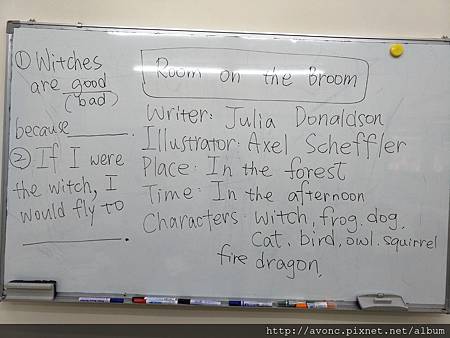 ① Witches
are good
(bad)
because ______.
② If I were
the witch, I
would fly to
______.
Room on the Broom
Writer: Julia Donaldson
Illustrator: Axel Scheffler
Place: In the forest
Time: In the afternoon
Characters: witch, frog, dog,
cat, bird, owl, squirrel
fire dragon,
http://avonc.pixnet.net/album